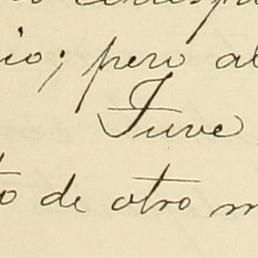 io; pero al
Tuve
to de otro m